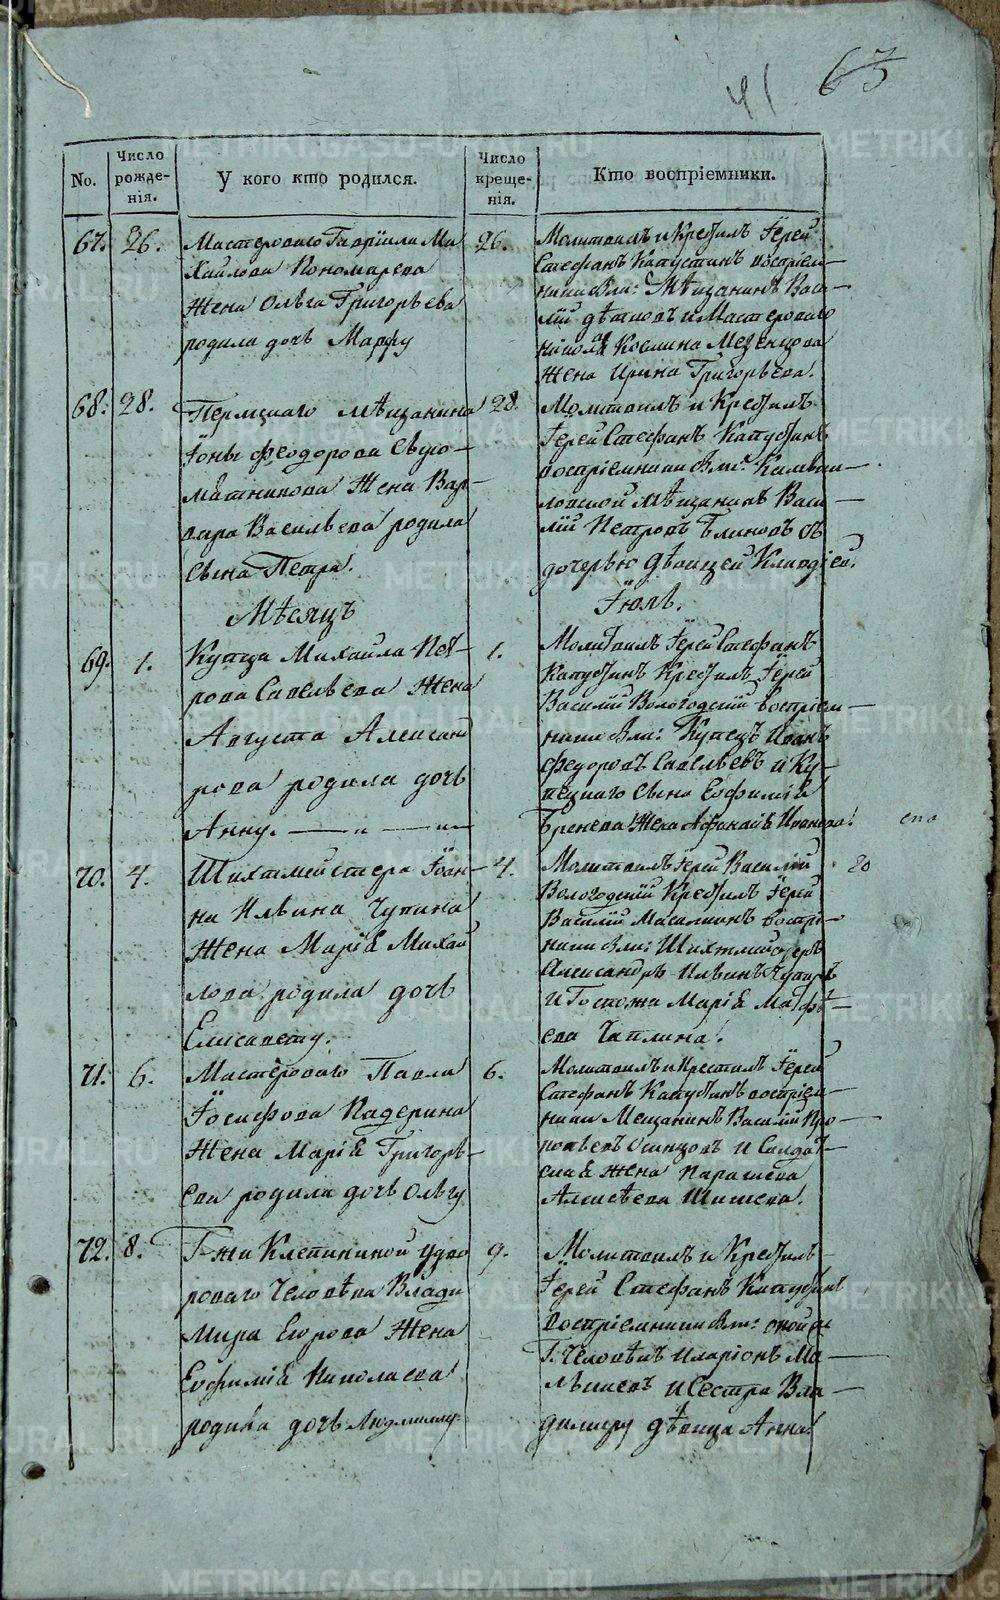 41
63
No.
Число рожденія.
У кого кто родился.
Число крещенія.
Кто воспріемники.
67.
26.
Мастероваго Гаврiила Ми
хайлова Пономарева
жена Ольга Григорьева
родила дочь Марфу
26.
Молитвилъ и Крестилъ Іерей
Стефанъ Капустинъ воспріем-
ники были: Мѣщанинъ Васи-
лій и Мастероваго
Мезенцова
жена Ирина Григорьева.
68.
28.
Пермскаго мѣщанина
Іоны Феодорова
жена Вар-
вара Васильева родила
сына Петра.
28.
Молитвилъ и Крестилъ
Іерей Стефанъ Капустинъ
воспріемники были
мѣщанинъ Васи-
лій Петровъ Блиновъ съ
дочерью дѣвицей Клавдіей.
Мѣсяцъ
Іюль.
69.
1.
Купца Михайла Пет-
рова Савельева жена
Августа Александ
рова родила дочь
Анну.
1.
Молитвилъ Іерей Стефанъ
Капустинъ Крестилъ Іерей
Василій Вологодскій воспріем-
ники были: Купецъ Иванъ
Федоровъ Савельевъ и Ку-
пецкаго сына Евфимія
жена Иванова.
70.
4.
Шихтмейстера Іоан-
на Ильина Чупина
жена Марія Михай
лова родила дочь
Елисавету.
4.
Молитвилъ Іерей Василій
Вологодскій Крестилъ Іерей
Василій воспрі-
ники были: Шихтмейстеръ
Александръ Ильинъ Чупинъ
и Госпожа Марія Матфѣ-
ева Чаплина.
71.
6.
Мастероваго Павла
Іосифова Падерина
жена Марія Григорь-
ева родила дочь Ольгу
6.
Молитвилъ и Крестилъ Іерей
Стефанъ Капустинъ воспріем-
ники Мещанинъ Василій Про-
копьевъ и Солдат-
ская жена Параскева
Алексѣева Шишева.
72.
8.
Г-жи Клепининой Дво
роваго человѣка Влади
мира Егорова жена
Евфимія Николаева
родила дочь Людмилу
9.
Молитвилъ и Крестилъ
Іерей Стефанъ Капустинъ
воспріемники были: оной же
Г. человѣкъ Иларіонъ Ма-
и сестра Вла-
димиру дѣвица Анна.
METRIKI.GASO-URAL.RU